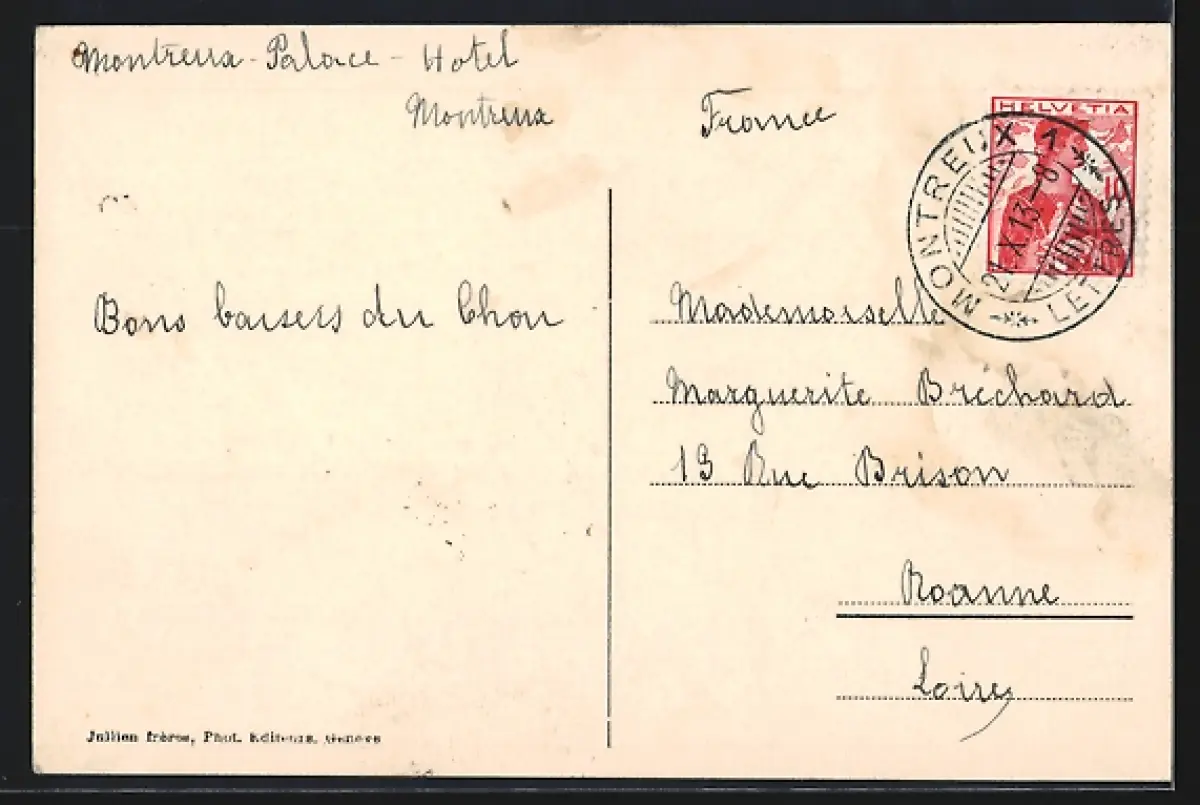 Montreux-Palace-Hotel
Montreux
France
HELVETIA
10
MONTREUX 1
LETTRES
21.X.13-8
Bons baisers du Chou
Mademoiselle
Marguerite Brechard
19 Rue Brison
Roanne
Loire
Jullien frères, Phot. Editeurs, Genève